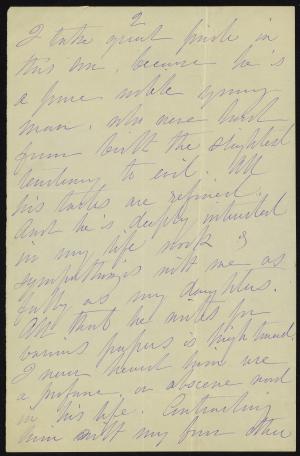 2
I take great pride in
this one, because he is
a pure noble young
man, who never had
from birth the slightest
tendency to evil. All
his tastes are refined.
And he's deeply interested
in my life work &
sympathizes with me as
fully as my daughters.
All that he writes for
various papers is high toned.
I never heard him use
a profane, or obscene word
in his life. Contrasting
him with my four other